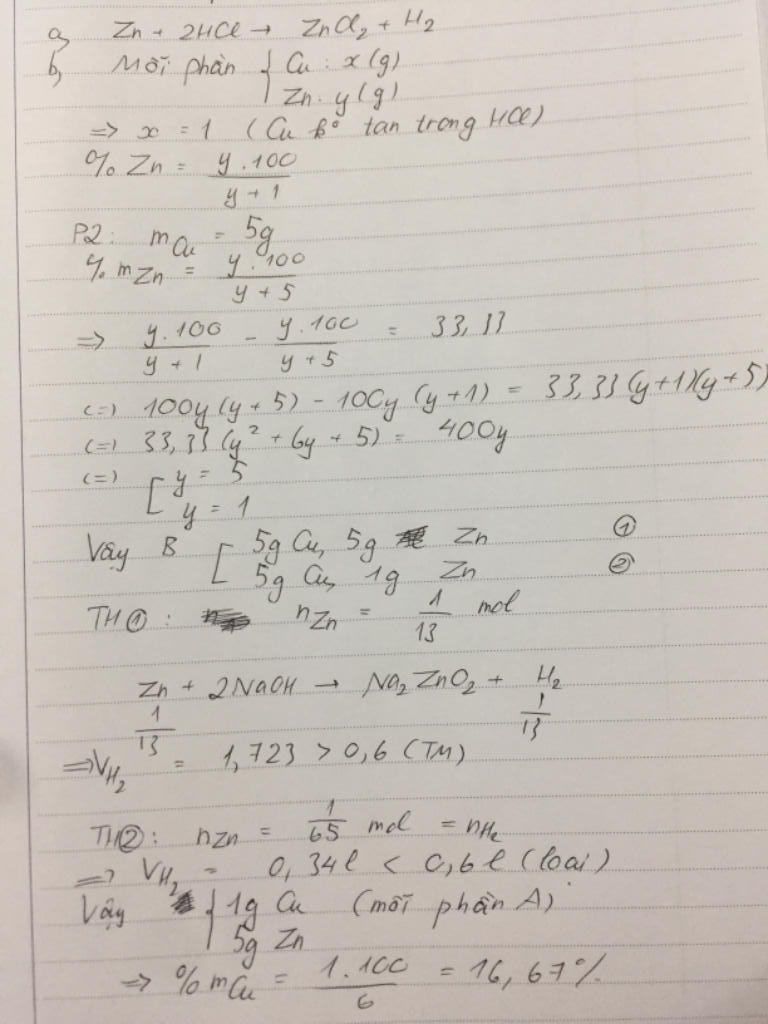 a, Zn + 2HCl → ZnCl₂ + H₂
b, Mỗi phần { Cu : x (g)
Zn : y (g)
=> x = 1 (Cu k° tan trong HCl)
% Zn = y . 100 / y + 1
P2 : m Cu = 5g
% m Zn = y . 100 / y + 5
=> y . 100 / y + 1 - y . 100 / y + 5 = 33,33
(=) 100y (y + 5) - 100y (y + 1) = 33,33 (y+1)(y+5)
(=) 33,33 (y² + 6y + 5) = 400y
(=) [ y = 5
y = 1
Vậy B [ 5g Cu, 5g Zn ①
5g Cu, 1g Zn ②
TH① : n Zn = 1/13 mol
Zn + 2NaOH → Na₂ZnO₂ + H₂
1/13 1/13
=> V H₂ = 1,723 > 0,6 (TM)
TH② : n Zn = 1/65 mol = n H₂
=> V H₂ = 0,34l < 0,6l (loại)
Vậy { 1g Cu (mỗi phần A)
5g Zn
=> % m Cu = 1 . 100 / 6 = 16,67%